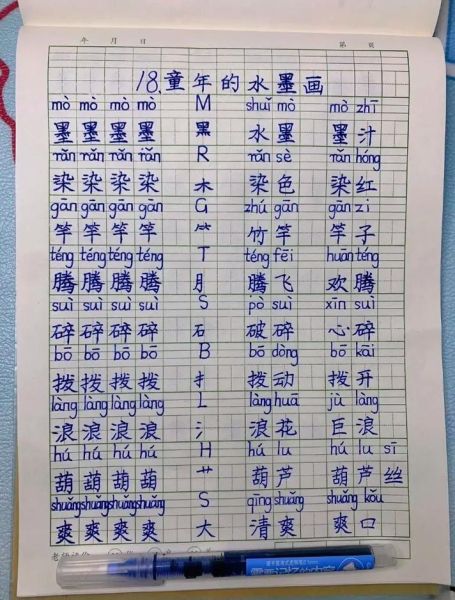 年 月 日 第 页
18.童年的水墨画
mò mò mò mò M shuǐ mò mò zhī
墨 墨 墨 墨 黑 水 墨 墨 汁
rǎn rǎn rǎn rǎn R rǎn sè rǎn hóng
染 染 染 染 木 染 色 染 红
gān gān gān gān G zhú gān gān zi
竿 竿 竿 竿 ⺮ 竹 竿 竿 子
téng téng téng téng T téng fēi huān téng
腾 腾 腾 腾 月 腾 飞 欢 腾
suì suì suì suì S pò suì xīn suì
碎 碎 碎 碎 石 破 碎 心 碎
bō bō bō bō B bō dòng bō kāi
拨 拨 拨 拨 扌 拨 动 拨 开
làng làng làng làng L làng huā jù làng
浪 浪 浪 浪 氵 浪 花 巨 浪
hú hú hú hú H hú lu hú lu sī
葫 葫 葫 葫 艹 葫 芦 葫 芦 丝
shuǎng shuǎng shuǎng shuǎng S qīng shuǎng shuǎng kǒu
爽 爽 爽 爽 大 清 爽 爽 口